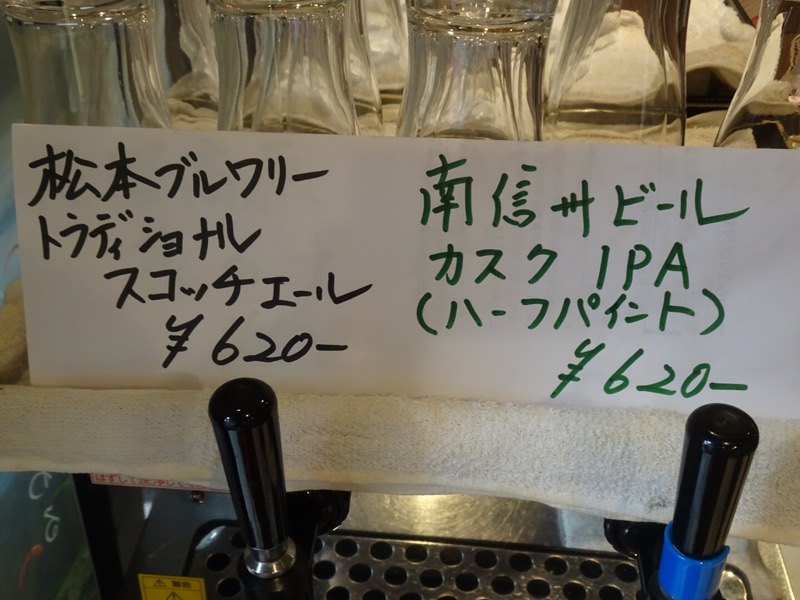 松本ブルワリー
トラディショナル
スコッチエール
¥620-
南信州ビール
カスク IPA
(ハーフパイント)
¥620-
警告